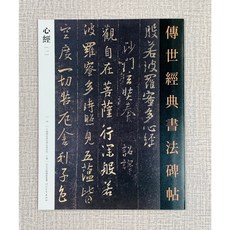 傳世經典書法碑帖
般若波羅蜜多心經
沙門玄奘奉 詔譯
觀自在菩薩行深般若
波羅蜜多時照見五蘊皆
空度一切苦厄舍利子色
心經